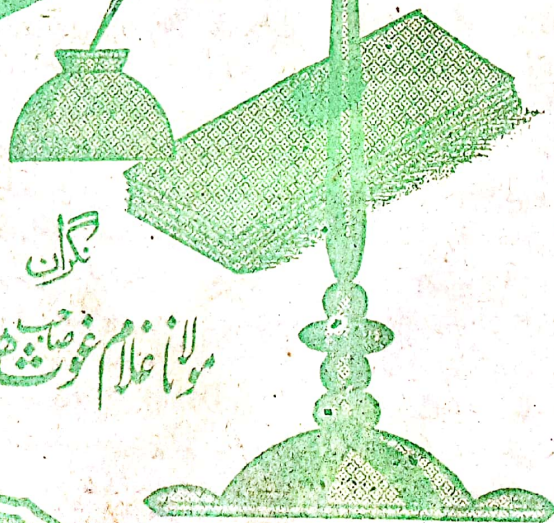 نگران
مولانا غلام غوث صاحب